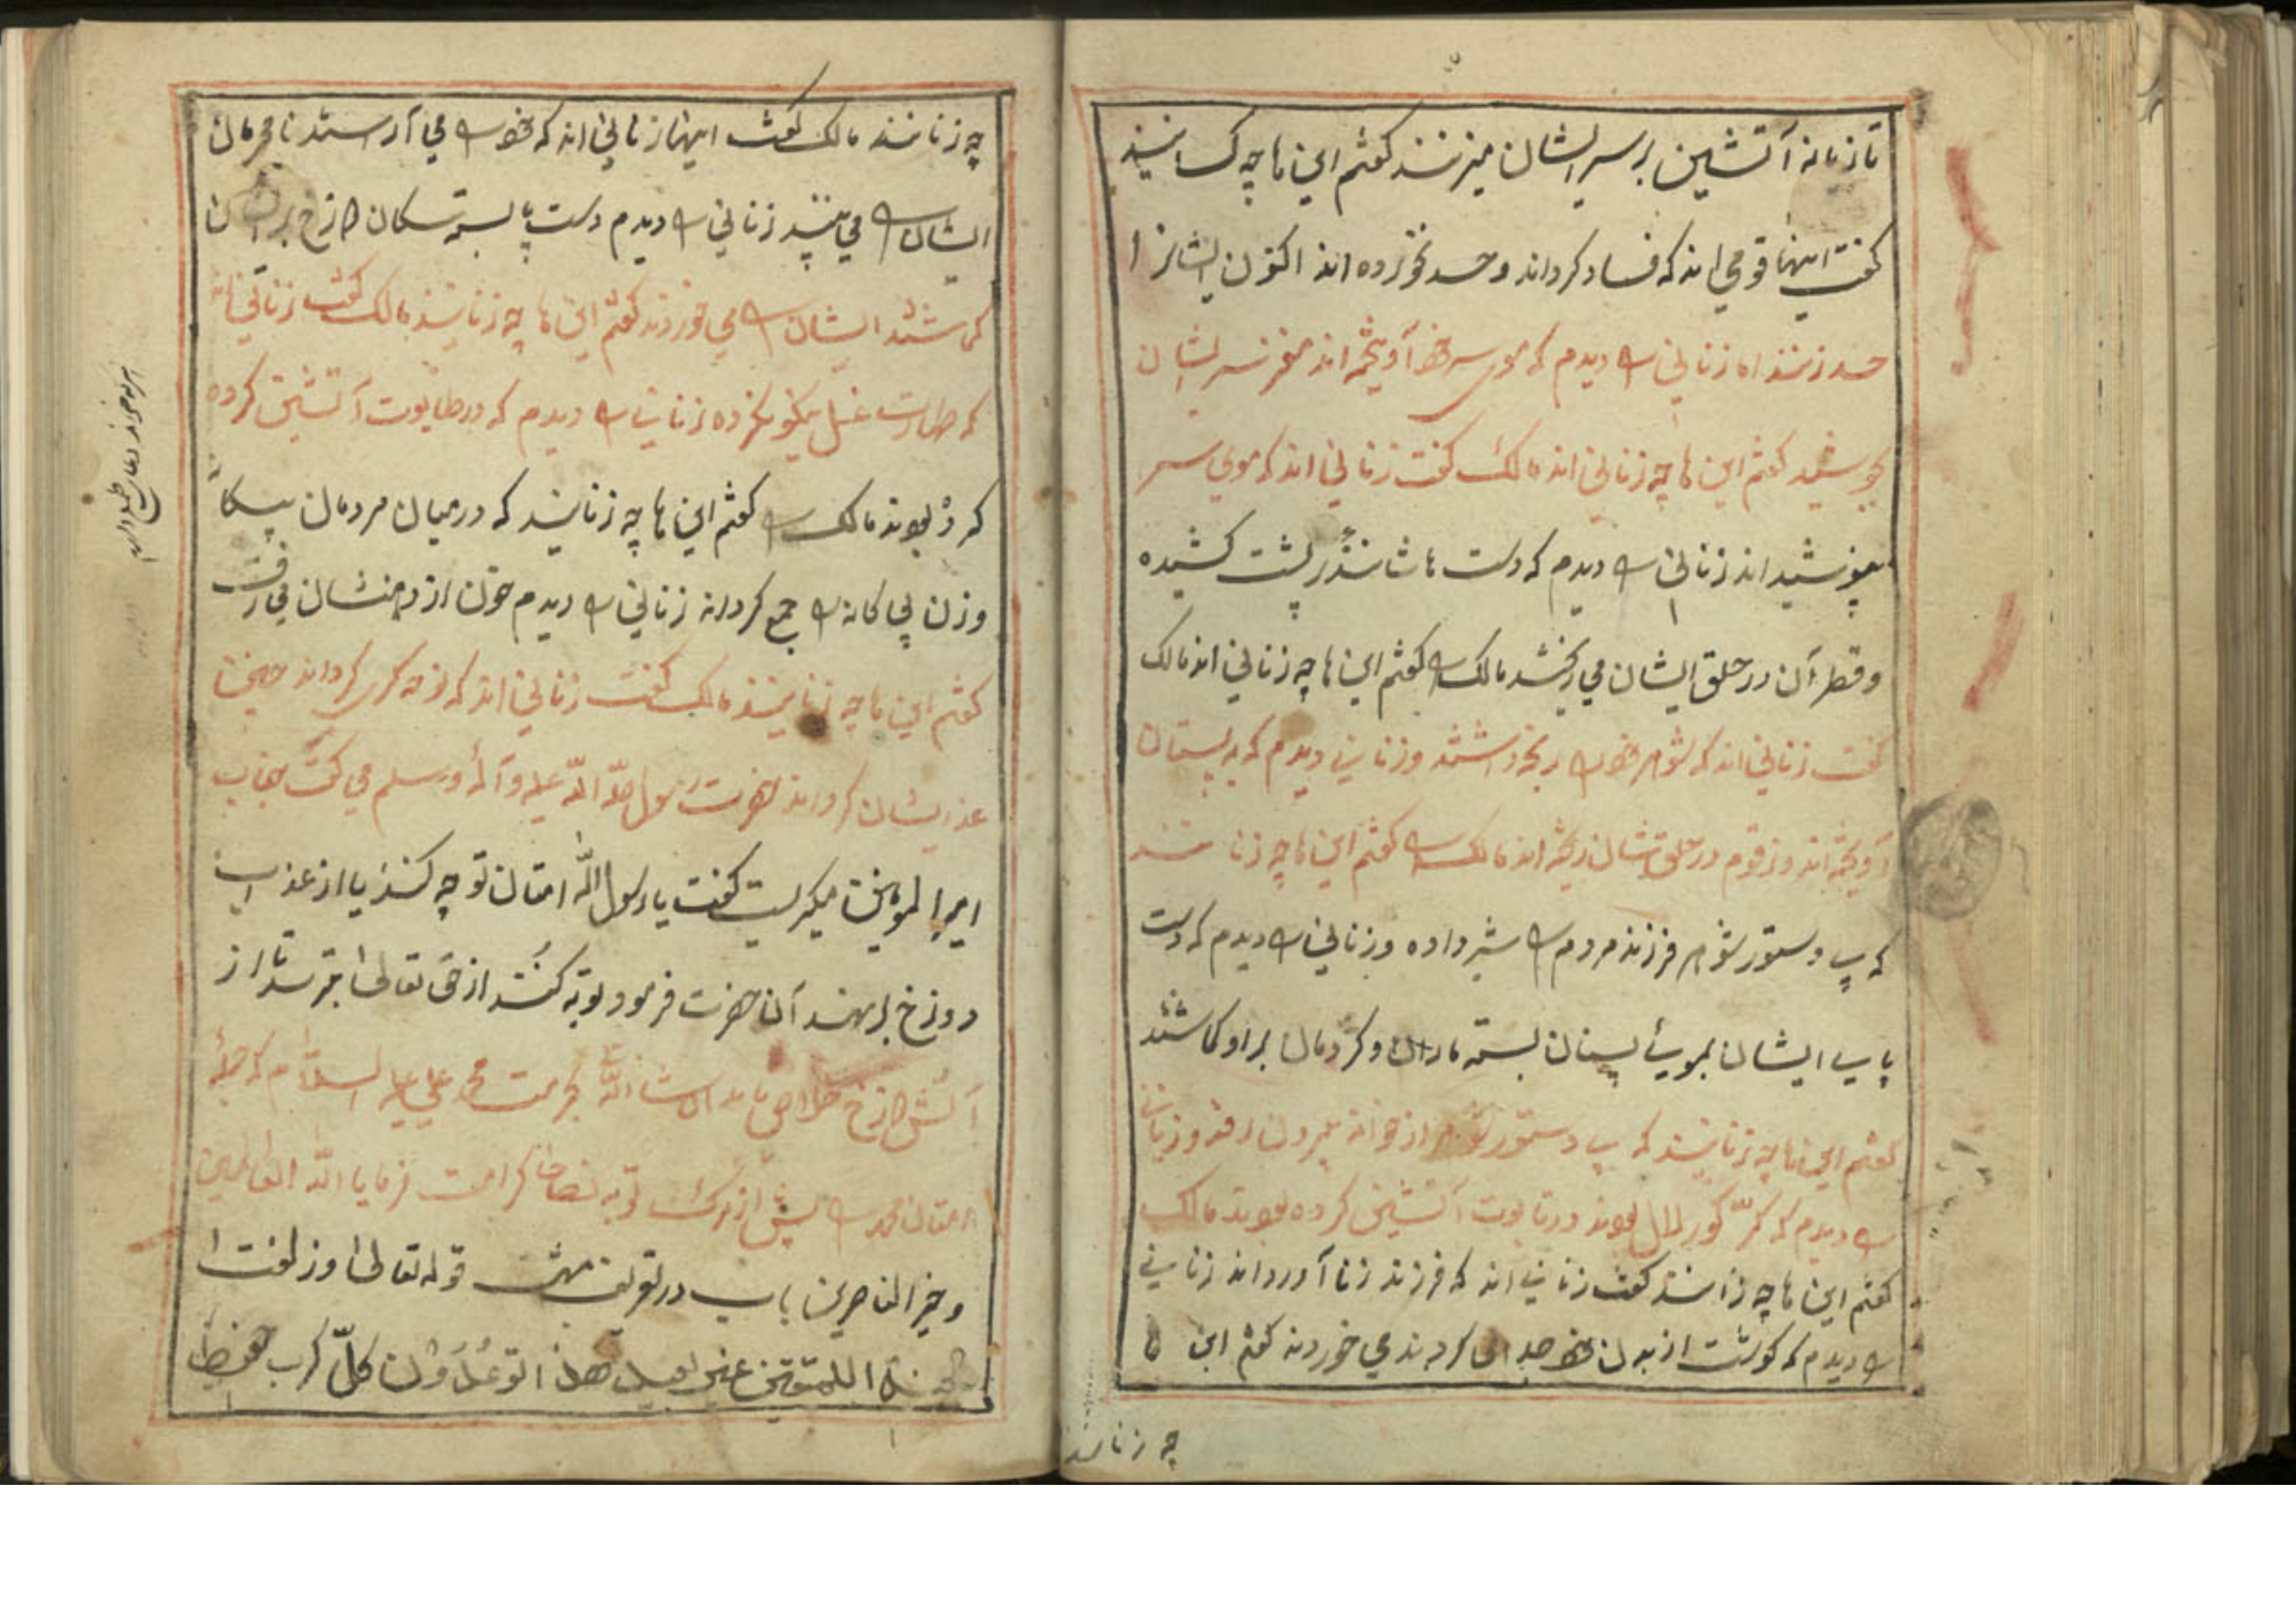 تازیانه آتشین بر سر ایشان میزنند کفتم این ها چه کسانیند
کفت اینها قومی اند که فساد کرداند و حد نخورده اند اکنون ایشانرا
حد زنند زنانی را دیدم که موی سر آویخته اند مغز سر ایشان
بجوشید کفتم این ها چه زنانی اند مالک کفت زنانی اند که موی سر
پوشید اند زنانی را دیدم که دست ها شان در پشت کشیده
و قطران در حلق ایشان می ریختند مالک را کفتم این ها چه زنانی اند مالک
کفت زنانی اند که شوهر خود را رنجه داشتند و زنانی دیدم که به پستان
آویخته اند و زقوم در حلق شان ریخته اند مالک را کفتم این ها چه زنانند
که بی دستور شوهر فرزند مردم را شیر داده و زنانی را دیدم که دست
پای ایشان بموی پستان بسته ماران و کژدمان بر او کماشتند
کفتم این ها چه زنانیند که بی دستور شوهر از خوانه بیرون رفتد و زنانی
را دیدم که کر کور لال بودند در تابوت آتشین کرده بودند مالک
کفتم این ها چه زنانند کفت زنانی اند که فرزند زنا آورداند زنانی
را دیدم که کوشت از بدن خود جدا می کردند می خوردند کفتم این ها
چه زنانند
چه زنانند مالک کفت اینها زنانی اند که خود را می آراستند نامحرمان
ایشان را می بینند زنانی را دیدم دست پا بسته سکان دوزخ بر ایشان
کماشتند ایشان را می خوردند کفتم این ها چه زنانیند مالک کفت زنانی اند
که طهارت غسل نیکو نکرده زنانی را دیدم که در طابوت آتشین کرده
کرده بودند مالک را کفتم این ها چه زنانیند که در میان مردمان بیکا
و زن بی کانه را جمع کرداند زنانی را دیدم خون از دهنشان می رفت
کفتم این ها چه زنانیند مالک کفت زنانی اند که نوحه کری کرداند
عذ ایشان کرداند حضرت رسول صلّه اللّه علیه و آله و سلم می کفت جناب
امیرالمؤمنین میکریست کفت یا رسول اللّه امتان تو چه کنند یا از عذاب
دوزخ برهند آن حضرت فرمود توبه کنند از حق تعالی بترسد تا از
آتش دوزخ خلاص یابد ان شاء اللّه بحرمت محمد علی علیه السلام که جمله
امتان محمد را پیش از مرک توبه نصوحا کرامت فرمایا اللّه العالمین
و خیر الناصرین باب در تعریف بهشت قوله تعالی و ازلفت ا
الجنة للمتقین غیر بعید هذا ما توعدون لکلّ